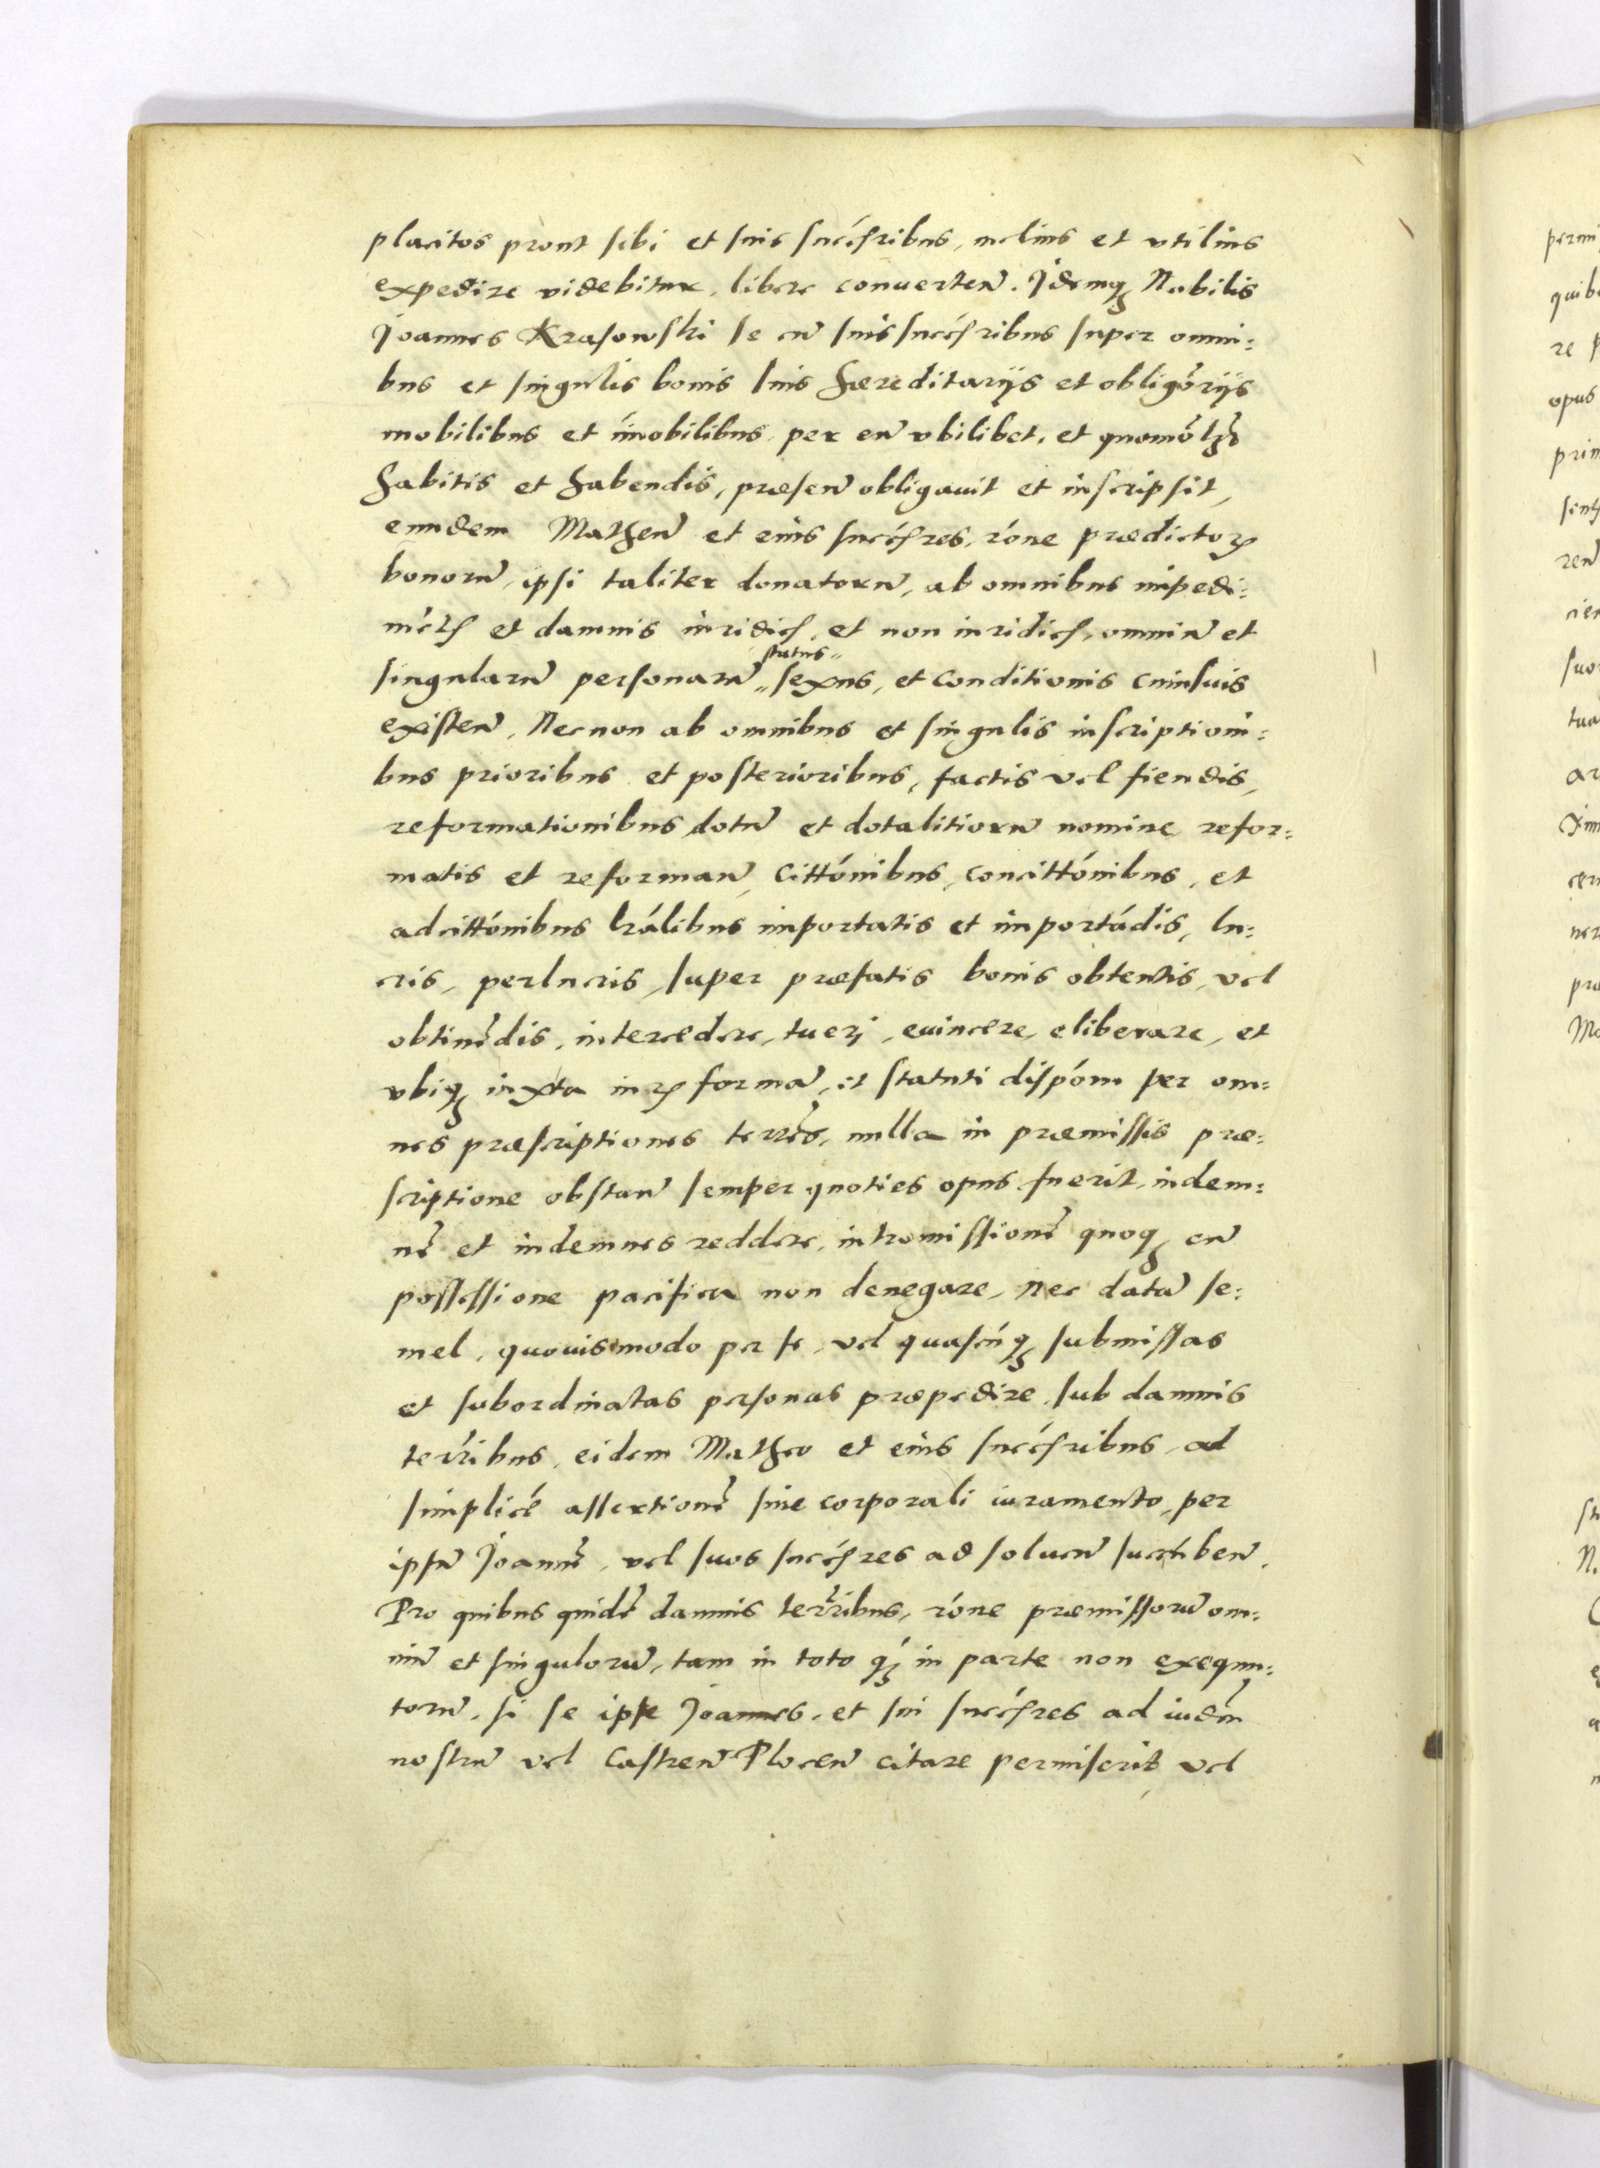 placitos prout sibi et suis succ͛sribus, melius et vtilius
expedire videbitur, libere conuerten̄. Idemq́ꝫ Nobilis
Joannes Krasowski se cū suis succ͛sribus super omni:
bus et singulis bonis suis hæreditarijs et obligōrijs
mobilibus et ím̄obilibus per eū vbilibet, et quomōlꝫ
habitis et habendis, præsen̄ obligauit et inscripsit,
eundem Matheū et eius succ͛sres, rōne prædictoꝝ
bonorū, ipsi taliter donatorū, ab omnibus impedi:
mētis et damnis iuridicis, et non iuridicis, omniū et
singularū personarū "status" sexus, et conditionis cuiusuis
existen̄, Nec non ab omnibus et singulis inscriptioni:
bus prioribus et posterioribus, factis vel fiendis,
reformationibus dotū et dotalitiorū nomine refor:
matis et reforman̄, cittōnibus, concittōnibus, et
adcittōnibus lrālibus importatis et importādis, lu:
cris, perlucris, super præfatis bonis obtentis, vel
obtinēdis, intercedere, tueri, euincere, eliberare, et
vbiq́ꝫ iuxta iuꝝ formā, et statuti dispōm per om:
nes præscriptiones terrēs, nulla in præmissis præ:
scriptione obstan̄ semper quoties opus fuerit, indem:
nē et indemnes reddere, intromissionē quoq́ꝫ cū
possessione pacifica non denegare, Nec datā se:
mel, quouis modo per se, vel quascūq́ꝫ submissas
et subordinatas personas præpedire, sub damnis
terrribus, eidem Matheo et eius succ͛sribus, ad
simplicē assertionē sine corporali iuramento, per
ipsū Joannē, vel suos succ͛sres ad soluen̄ succūben̄.
Pro quibus quidē damnis terrribus, rōne præmissorū om:
niū et singulorū, tam in toto q́ꝫ in parte non exequu:
torū, si se ipse Joannes, et sui succ͛sres ad iudm̄
nostrū vel Castren̄ Plocen̄ citare permiserit, vel